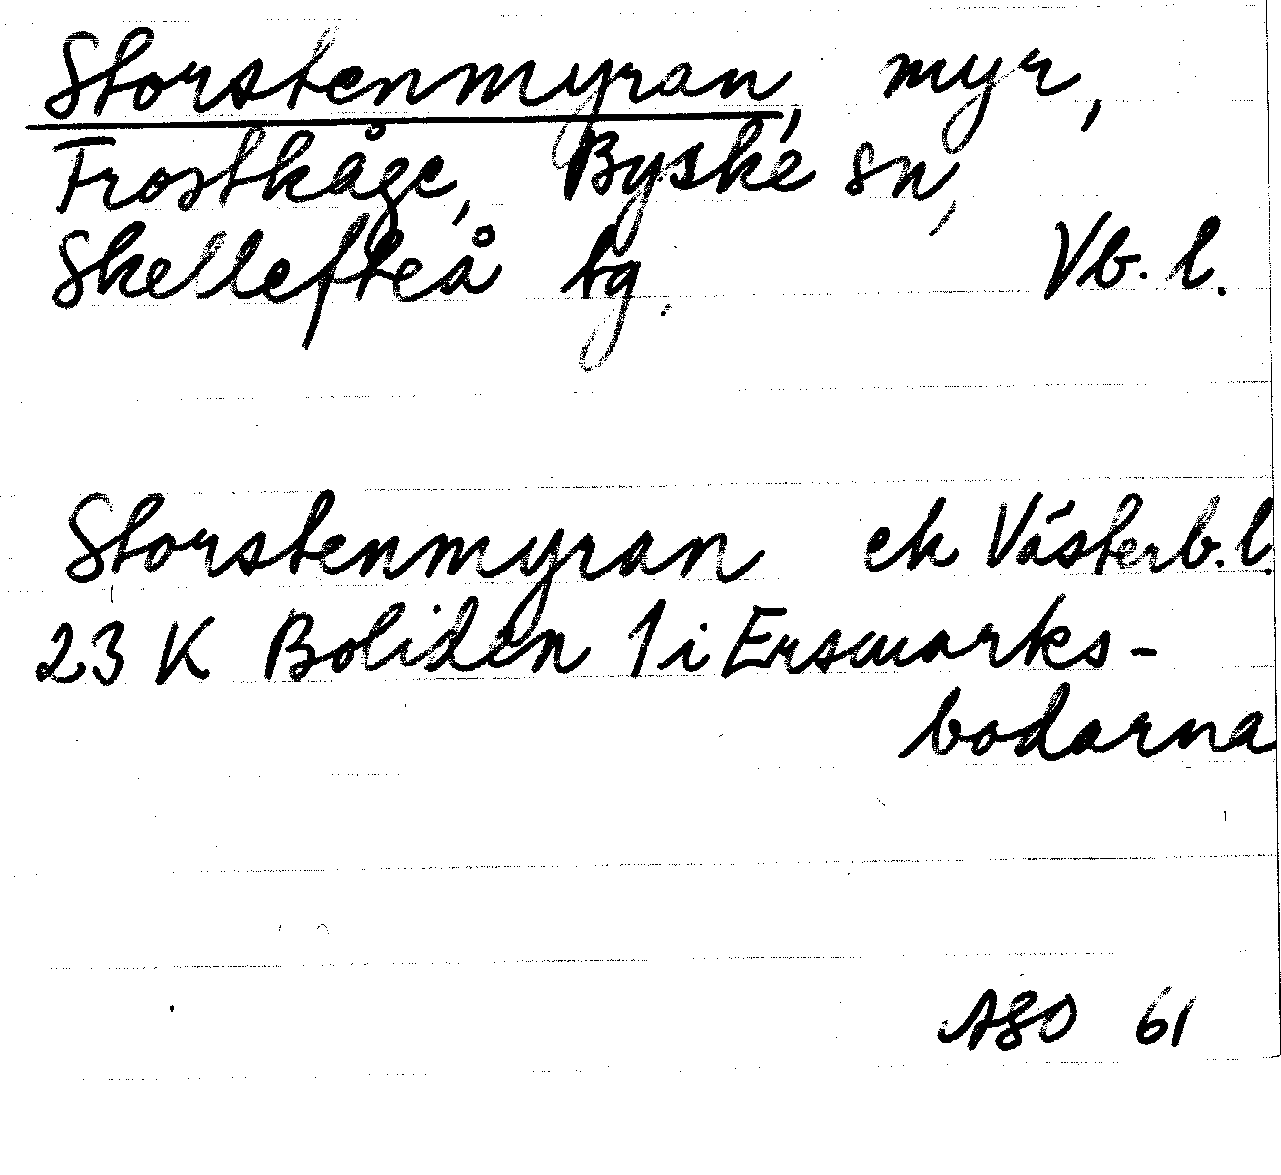 Storstenmyran, myr,
Frostkåge, Byske sn,
Skellefteå tg. Vb. l.
Storstenmyran ek Västerb. l.
23 K Boliden 1 i Ersmarks-
bodarna
ASO 61